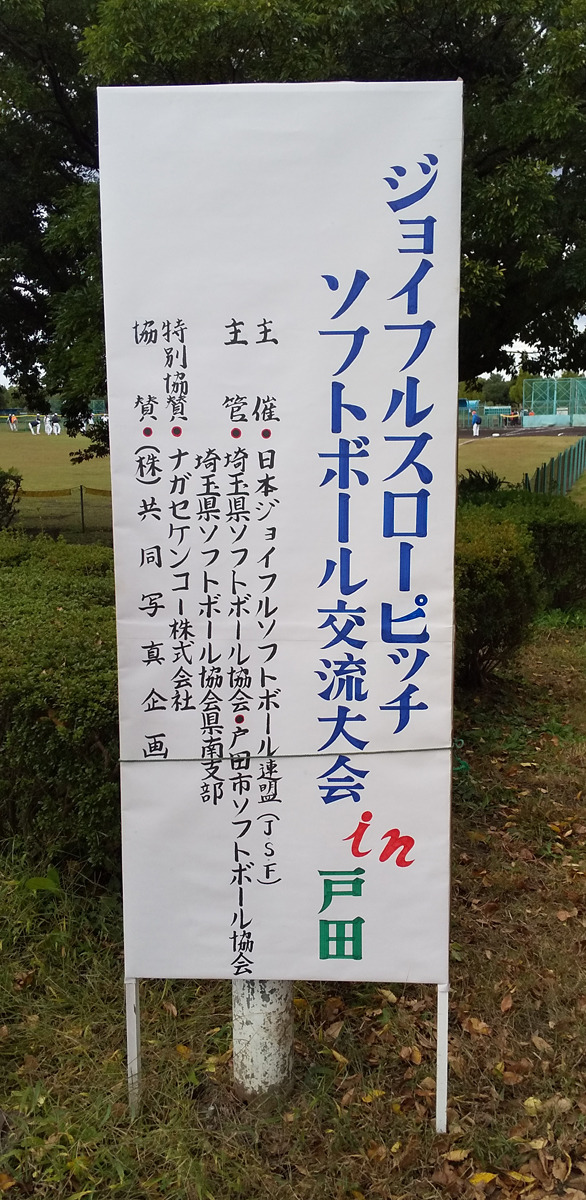 ジョイフルスローピッチ
ソフトボール交流大会 in 戸田
主催・日本ジョイフルソフトボール連盟(JSF)
主管・埼玉県ソフトボール協会・戸田市ソフトボール協会
埼玉県ソフトボール協会県南支部
特別協賛・ナガセケンコー株式会社
協賛・(株)共同写真企画